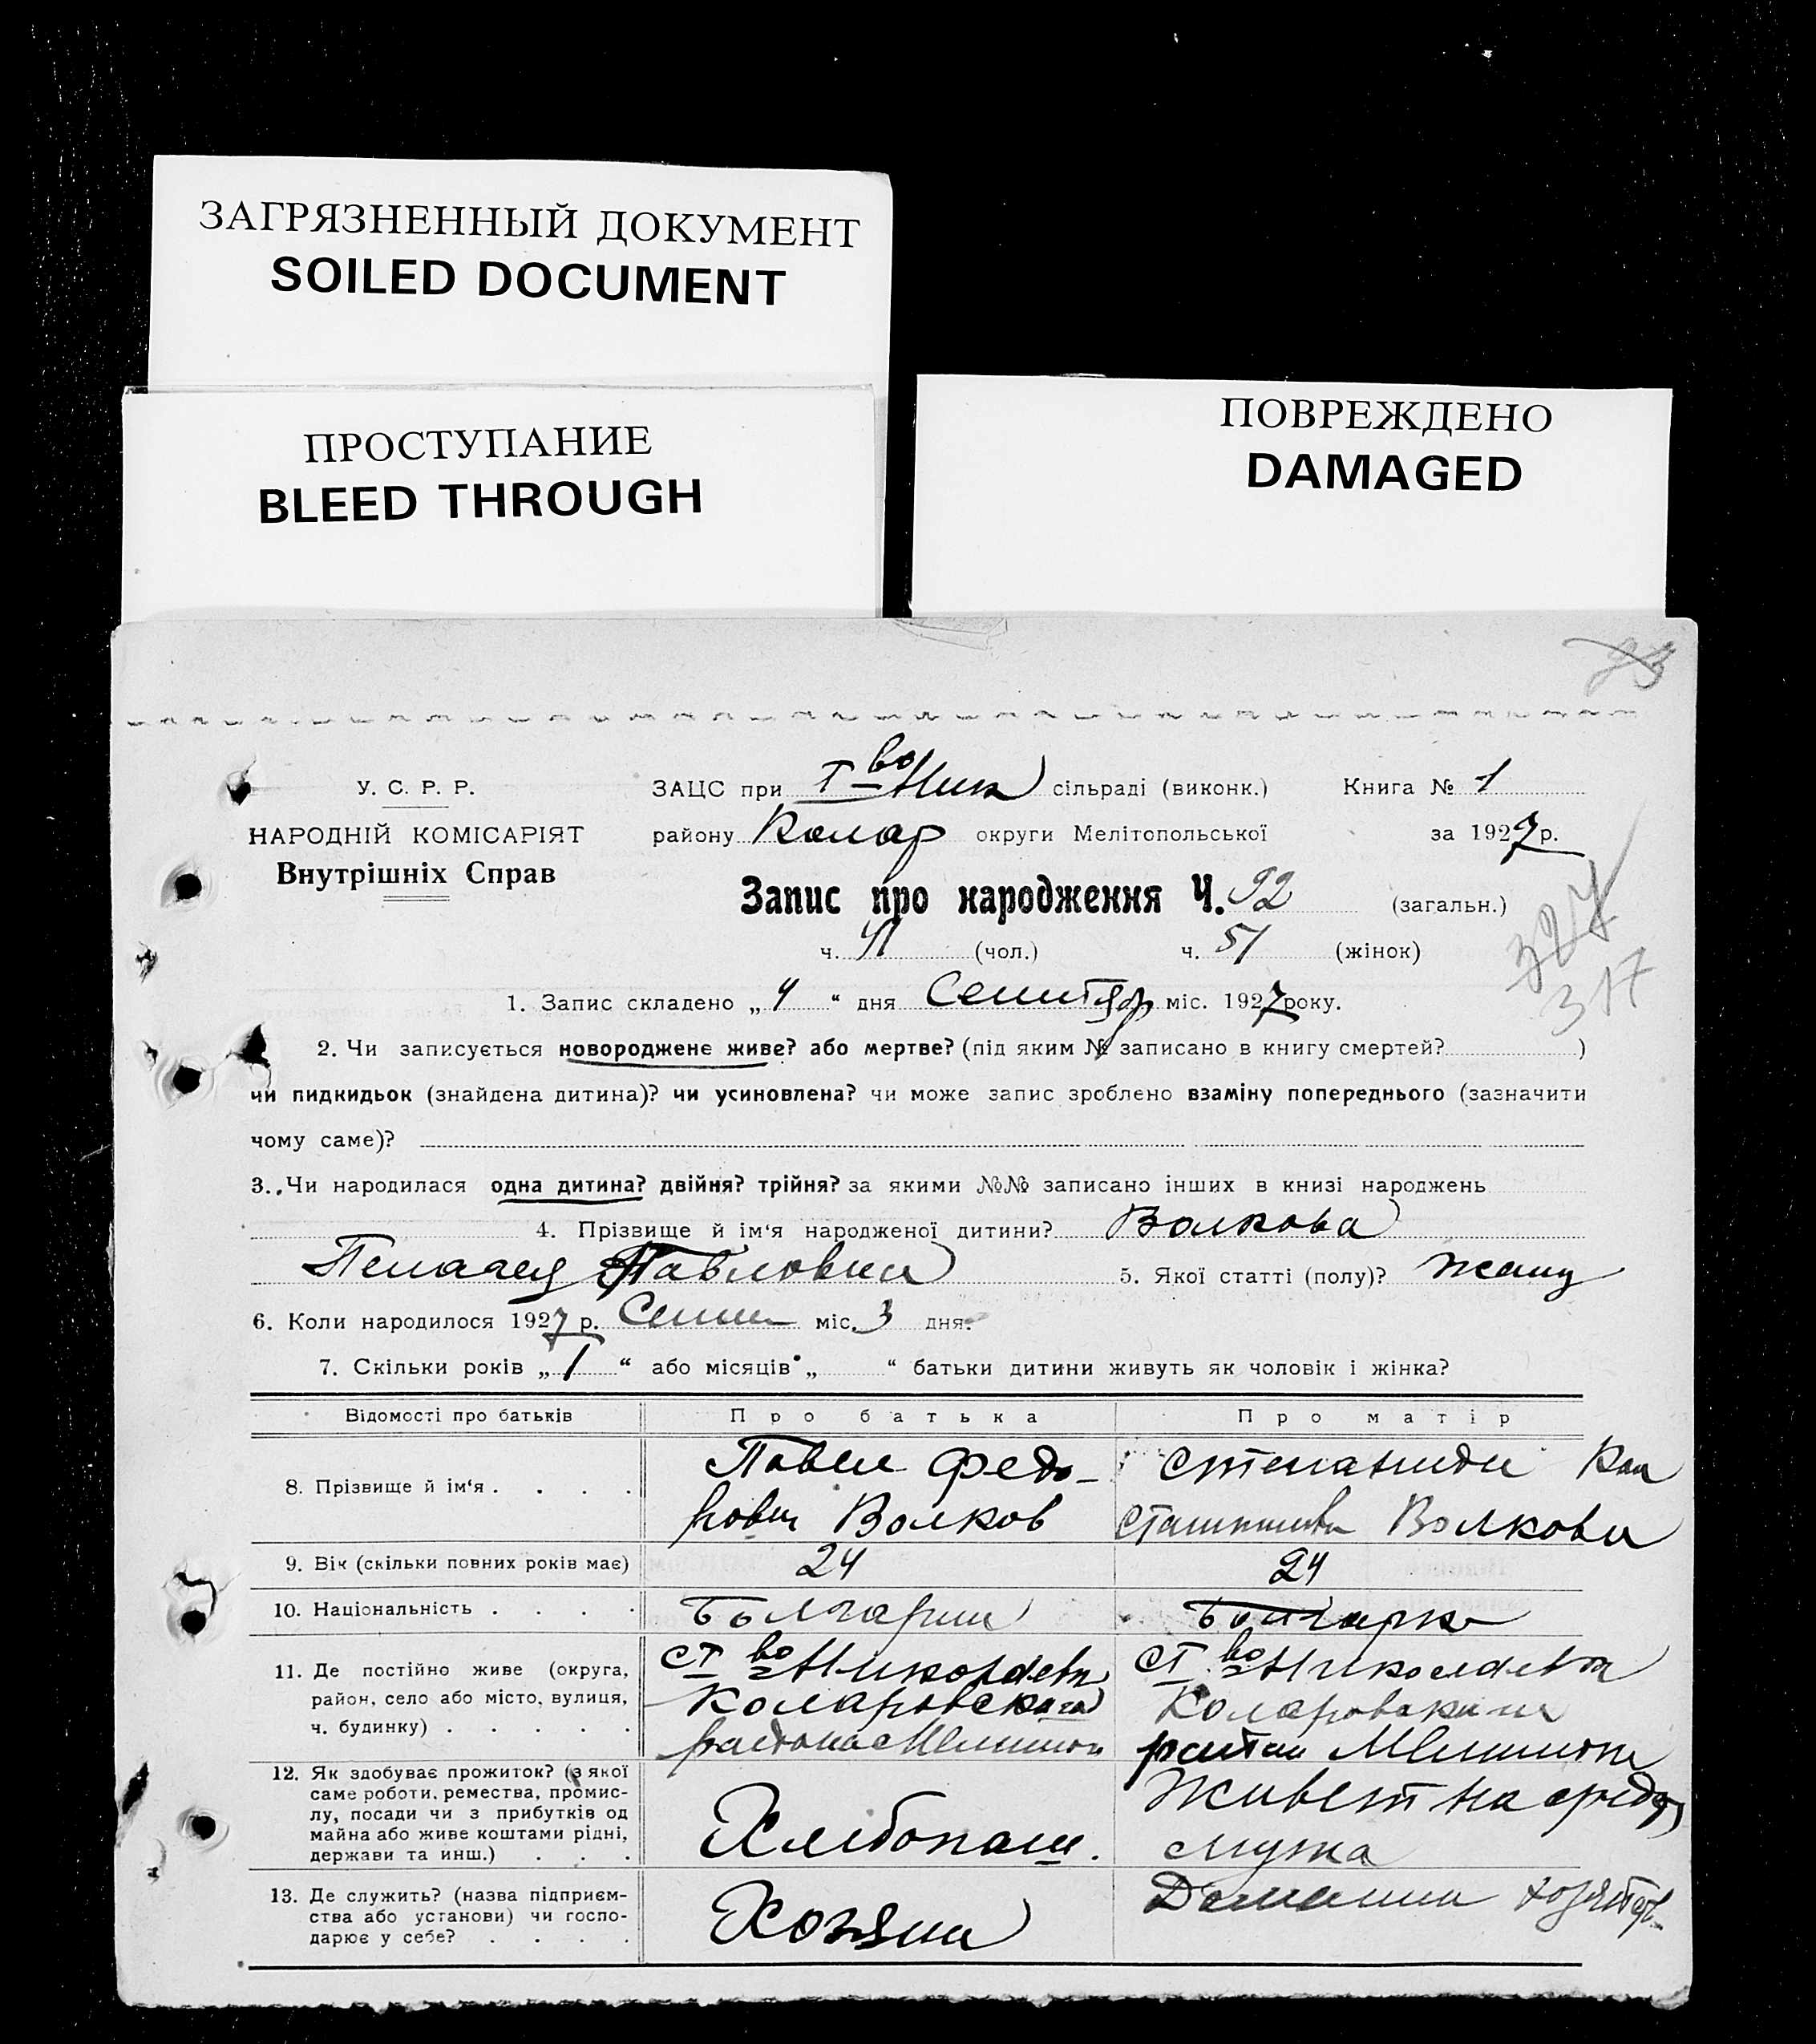 ЗАГРЯЗНЕННЫЙ ДОКУМЕНТ
SOILED DOCUMENT
ПРОСТУПАНИЕ
BLEED THROUGH
ПОВРЕЖДЕНО
DAMAGED
93
У. С. Р. Р.
НАРОДНІЙ КОМІСАРІЯТ
Внутрішніх Справ
ЗАЦС при Т-во Ник сільраді (виконк.) Книга № 1
району Колар округи Мелітопольської за 1927 р.
Запис про народження Ч. 92 (загальн.)
327
317
ч. 41 (чол.) ч. 51 (жінок)
1. Запис складено „ 4 “ дня Сентяб міс. 1927 року.
2. Чи записується новороджене живе? або мертве? (під яким № записано в книгу смертей? )
чи пидкидьок (знайдена дитина)? чи усиновлена? чи може запис зроблено взаміну попереднього (зазначити
чому саме)?
3. Чи народилася одна дитина? двійня? трійня? за якими №№ записано інших в книзі народжень
4. Прізвище й ім‘я народженої дитини? Волкова
Пелагея Павловна 5. Якої статті (полу)?
6. Коли народилося 1927 р. Сент міс. 3 дня.
7. Скільки років „ 1 “ або місяців „ “ батьки дитини живуть як чоловік і жінка?
Відомості про батьків Про батька Про матір
8. Прізвище й ім‘я . . . . Павел Федо-
рович Волков
Степанида Кон
стантинов Волкова
9. Вік (скільки повних років має) 24 24
10. Національність . . . . Болгарин Болгарка
11. Де постійно живе (округа,
район, село або місто, вулиця,
ч. будинку) . . . . .
Ст-во Николаевка
Коларовского
района Мелитоп
Ст-во Николаевка
Коларовскаго
район Мелитоп
12. Як здобуває прожиток? (з якої
саме роботи, ремества, промис-
лу, посади чи з прибутків од
майна або живе коштами рідні,
держави та инш.) . . .
Хлібопаш.
Живет на сред
мужа
13. Де служить? (назва підприєм-
ства або установи) чи госпо-
дарює у себе? . . . .
Хозяин
Домашн хозяйств